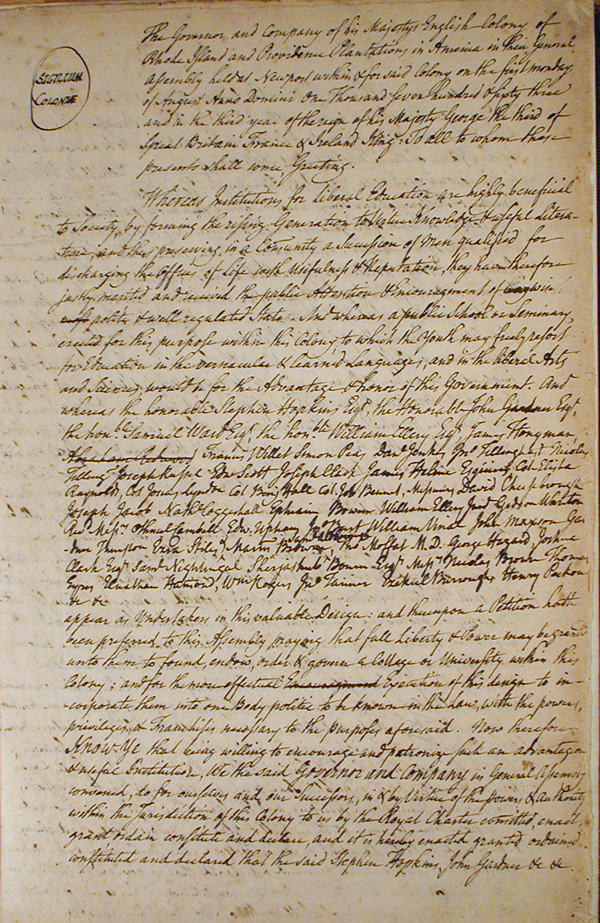 SIGILLUM
COLONIÆ
The Governor and Company of his Majestys English Colony of
Rhode Island and Providence Plantations in America in their General
Assembly held at Newport within & for said Colony on the first monday
of August Anno Domini One Thousand seven hundred & sixty three
and in the third year of the reign of his Majesty George the third of
Great Britain France & Ireland King: To all to whom these
presents shall come Greeting.
Whereas Institutions for liberal Education are highly beneficial
to Society, by forming the rising Generation to Value Knowledge & useful Litera-
ture, and thus preserving in a Community a Succession of Men qualified for
discharging the Offices of Life with Usefulness & Reputation, they have therefore
justly merited and received the public Attention & Encouragement of every wise,
polite & well regulated State. And whereas a public School or Seminary,
erected for this purpose within this Colony to which the Youth may freely resort
for Education in the vernacular & learned Languages, and in the liberal Arts
and Sciences, would be for the Advantage & honor of this Government. And
whereas the honorable Stephen Hopkins Esqr, the Honorable John Gardner Esqr,
the honbl Samuel Ward Esqr, the honble William Ellery Esqr, James Honyman
Francis Willet Simon Pea, Danl Jenkes Jno Tillinghast Nicolas
Tilling Joseph Russel Edw Scott Joseph Clark James Helme Esquires Col Elisha
Reynolds, Col Josias Lyndon Col Benj Hall Col Job Bennet, Messieurs David Cheesbrough
Joseph Jacob Nath Coggeshall Ephraim Bowen William Ellery Jun Gideon
Revd Messrs Othniel Cambell Edw Upham William Vinal John Maxson Gar-
dner Thurston Ezra Stiles Martin Brown, Tho Moffat M.D. George Hazard, Joshua
Clark Esqr Saml Nightingal Bourn Esqr Messrs Nicolas Brown Thomas
Eyres Elnathan Hamond, Wm Rogers Jno Turner Ezekiel Burroughs Henry
&c &c
appear as Undertakers in this valuable Design: and thereupon a Petition hath
been preferred to this Assembly praying that full Liberty & Power may be granted
unto them to found, endow, order & govern a College or University within this
Colony; and for the more effectual Encouragement Execution of this design to in-
corporate them into one Body politic to be known in the Law, with the powers,
privileges, & Franchises necessary to the purposes aforesaid. Now therefore
KNOW YE that being willing to encourage and patronize such an advantageous
& useful Institution, We the said Governor and Company in General Assembly
convened, do for ourselves and our Successors, in & by Virtue of the powers & authority
within the Jurisdiction of this Colony to us by the Royal Charter committed, enact
grant ordain constitute and declare, and it is hereby enacted granted ordained
constituted and declared that the said Stephen Hopkins, John Gardner &c &c